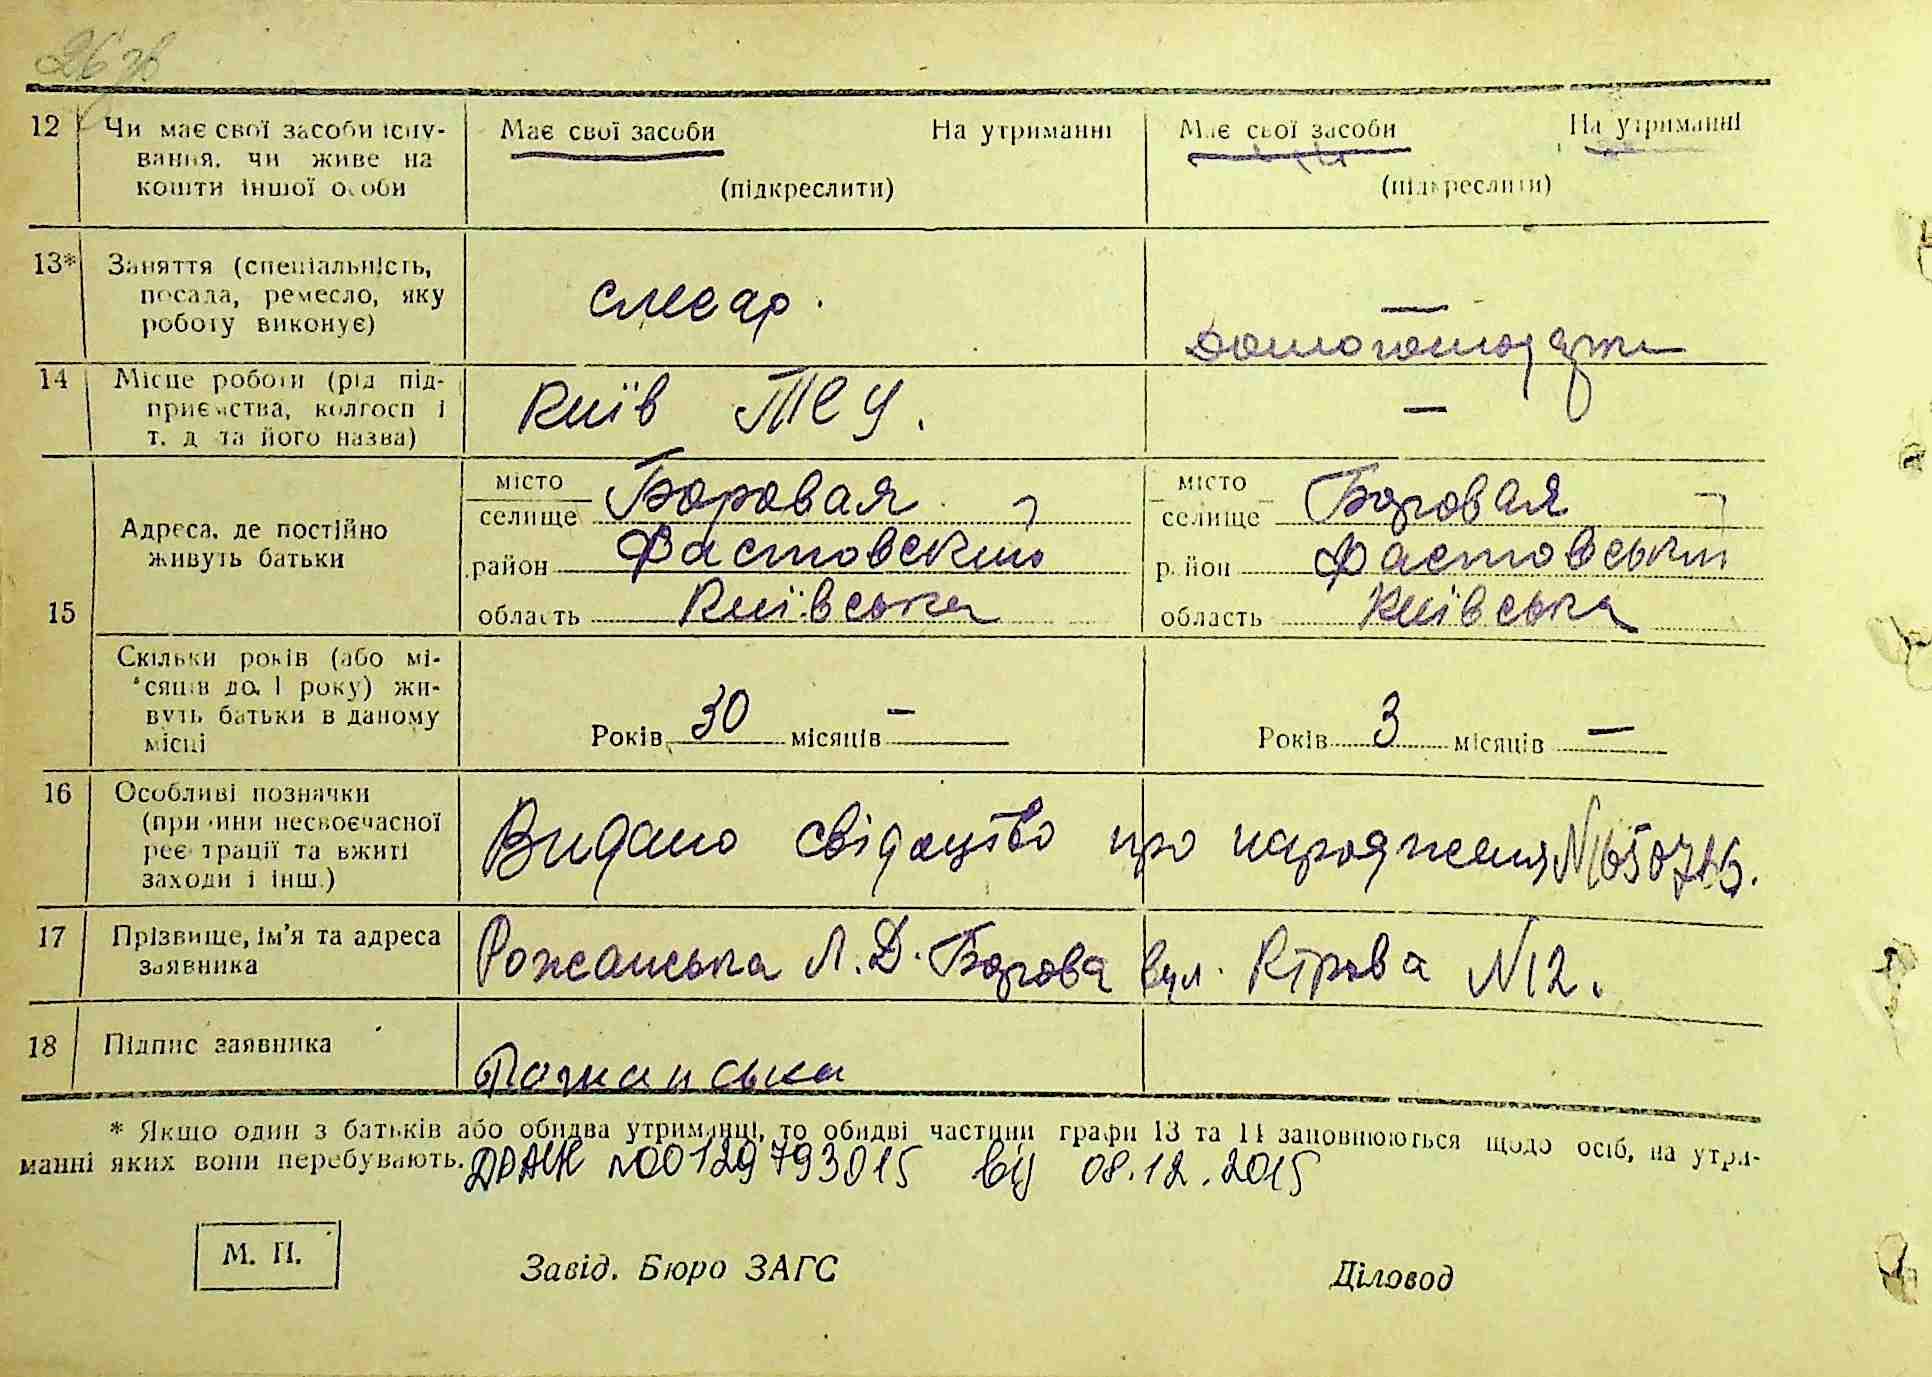 26 зв
12 Чи має свої засоби існу- Має свої засоби На утриманні Має свої засоби На утриманні
вання, чи живе на
кошти іншої особи (підкреслити) (підкреслити)
13* Заняття (спеціальність,
посада, ремесло, яку слесар. —
роботу виконує)
14 Місце роботи (рід під-
приємства, колгосп і Київ ТЕУ. —
т. д. та його назва)
місто Боровая місто Боровая
селище селище
Адреса, де постійно
живуть батьки район Фастовский район Фастовський
15 область Київська область Київська
Скільки років (або мі-
сяців до 1 року) жи-
вуть батьки в даному Років 30 місяців — Років 3 місяців —
місці
16 Особливі позначки
(причини несвоєчасної Видано свідоцтво про народження
реєстрації та вжиті
заходи і інш.)
17 Прізвище, ім’я та адреса Рожанська Л. Д. Борова вул. Кірова N12.
заявника
18 Підпис заявника Рожанська
* Якщо один з батьків або обидва утриманці, то обидві частини графи 13 та 14 заповнюються щодо осіб, на утри-
манні яких вони перебувають. N00129793015 від 08.12.2015
М. П. Завід. Бюро ЗАГС Діловод